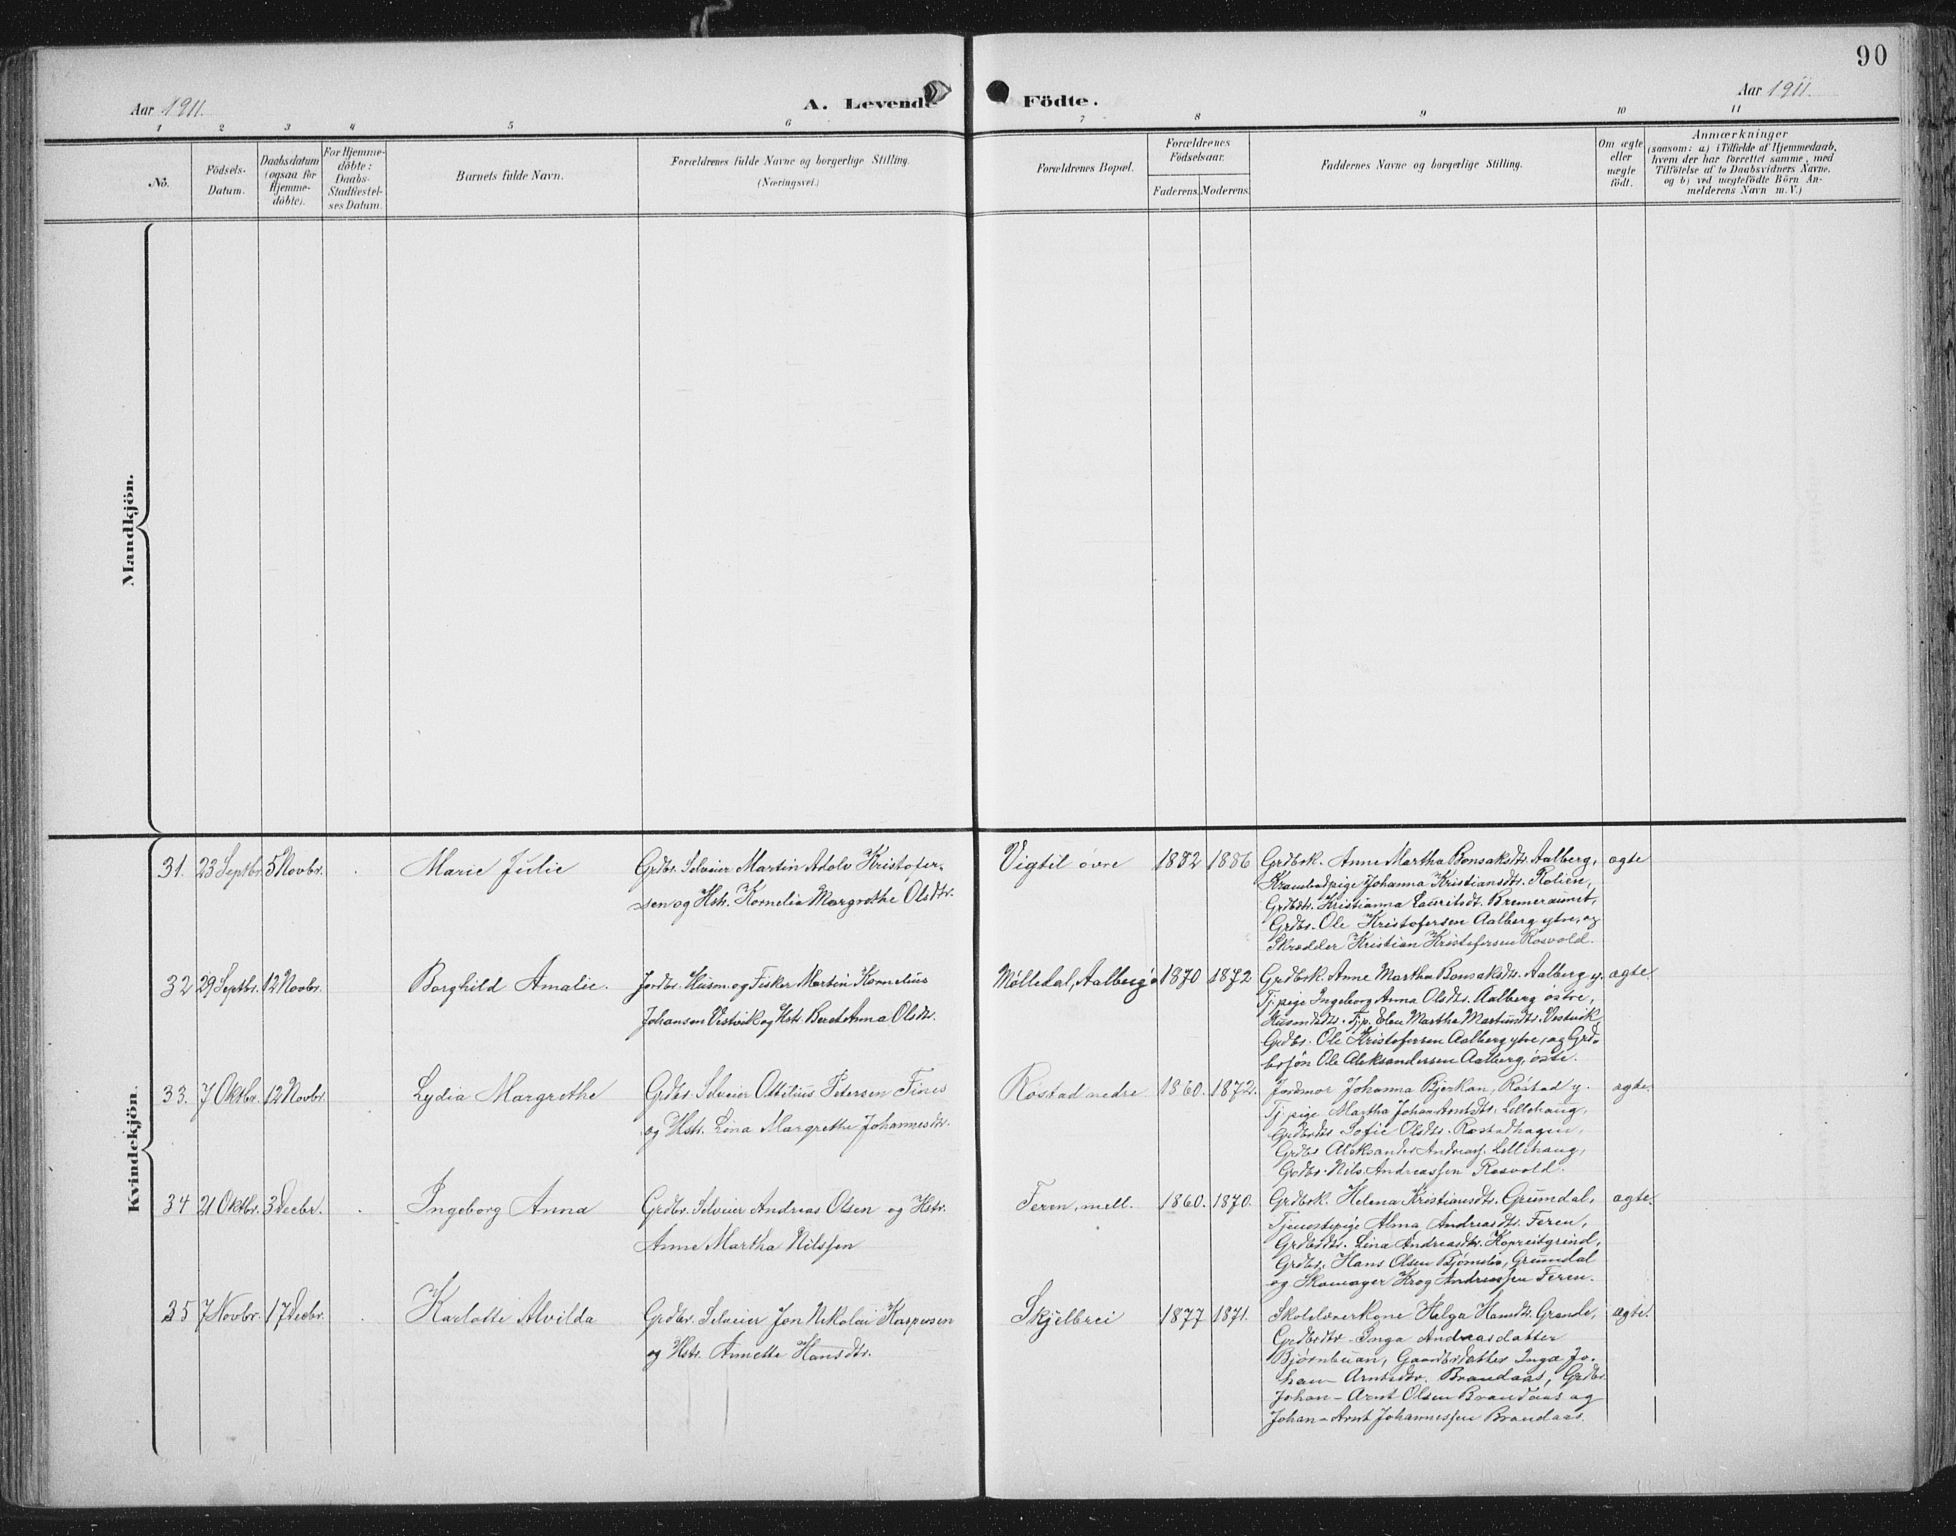 90
Aar 1911.
A. Levende
Födte.
Aar 1911.
1 2 3 4 5 6 7 8 9 10 11
No.
Födsels-
Datum.
Daabsdatum
(ogsaa for
Hjemme-
döbte).
For Hjemme-
döbte:
Daabs-
Stadfæstel-
ses Datum.
Barnets fulde Navn.
Forældrenes fulde Navne og borgerlige Stilling.
(Næringsvei.)
Forældrenes Bopæl.
Forældrenes
Födselsaar.
Faderens. Moderens.
Faddernes Navne og borgerlige Stilling.
Om ægte
eller
uægte
födt.
Anmærkninger
(saasom: a) i Tilfælde af Hjemmedaab,
hvem der har forrettet samme, med
Tilföielse af to Daabsvidners Navne,
og b) ved uægtefödte Börn An-
melderens Navn m. V.)
Mandkjön.
Kvindekjön.
31. 23 Septbr. 5 Novbr. Marie Julie
Grdbr. Selveier Martin Adolv Kristofer-
sen og Hstr. Kornelia Margrethe Olsdtr.
Vigtil øvre 1882 1886
Grdbrk. Anne Martha Bonsaksdtr. Aalberg,
Krambodpige Johanna Kristiansdtr. Rolien,
Grdbdtr. Kristianna Lauritsdt. Bremeraunet,
Grdbr. Ole Kristofersen Aalberg ytre, og
Skrædder Kristian Kristofersen Rosvold.
ægte
32 29 Septbr. 12 Novbr. Borghild Amalie.
Jordbr. Husm. og Fisker Martin Kornelius
Johansen Vestvik og Hstr. Beret Anna Olsdtr.
Mølledal, Aalberg ø. 1870 1872
Grdbrk. Anne Martha Bonsaksdtr. Aalberg y.
Tj.pige Ingeborg Anna Olsdtr. Aalberg østre,
Husmdtr. Tj.p. Elen Martha Martinsdtr. Vestvik,
Grdbr. Ole Kristofersen Aalberg ytre, og Grd-
brsøn Ole Aleksandersen Aalberg, østr.
ægte.
33. 7 Oktbr. 12 Novbr. Lydia Margrethe
Grdbr. Selveier Ottilius Petersen Fines
og Hstr. Lina Margrethe Johannesdtr.
Røstad nedre 1860. 1872.
Jordmor Johanna Bjerkan, Røstad y.
Tj.pige Martha Johan-Arntsdtr. Lillehaug,
Grdbrdtr Sofie Olsdtr. Røstadhagen,
Grdbr Aleksander Andreass. Lillehaug,
Grdbr. Nils Andreassen Rosvold.
ægte.
34 21 Oktbr. 3 Decbr. Ingeborg Anna
Grdbr. Selveier Andreas Olsen og Hstr.
Anne Martha Nilssen
Feren, mell. 1860. 1870.
Grdbrk. Helena Kristiansdtr. Grundal,
Tjenestepige Alma Andreasdtr. Feren,
Grdbrdtr. Lina Andreasdtr. Kopreitgrind,
Grdbr. Hans Olsen Bjørnslia, Grundal
og Skomager Krog Andreassen Feren.
ægte.
35 7 Novbr. 17 Decbr. Karlotte Alvilda
Grdbr. Selveier Jon Nikolai Kaspersen
og Hstr. Annette Hansdtr.
Skjelbrei 1877 1871.
Skolelærerkone Helga Hansdtr. Grande,
Grdbrdtr. Inga Andreasdatter
Bjørnbuan, Gaardbrdatter Inga Jo-
han-Arntsdtr. Brandaas, Grdbr.
Johan-Arnt Olsen Brandaas og
Johan-Arnt Johannessen Brandaas.
ægte.